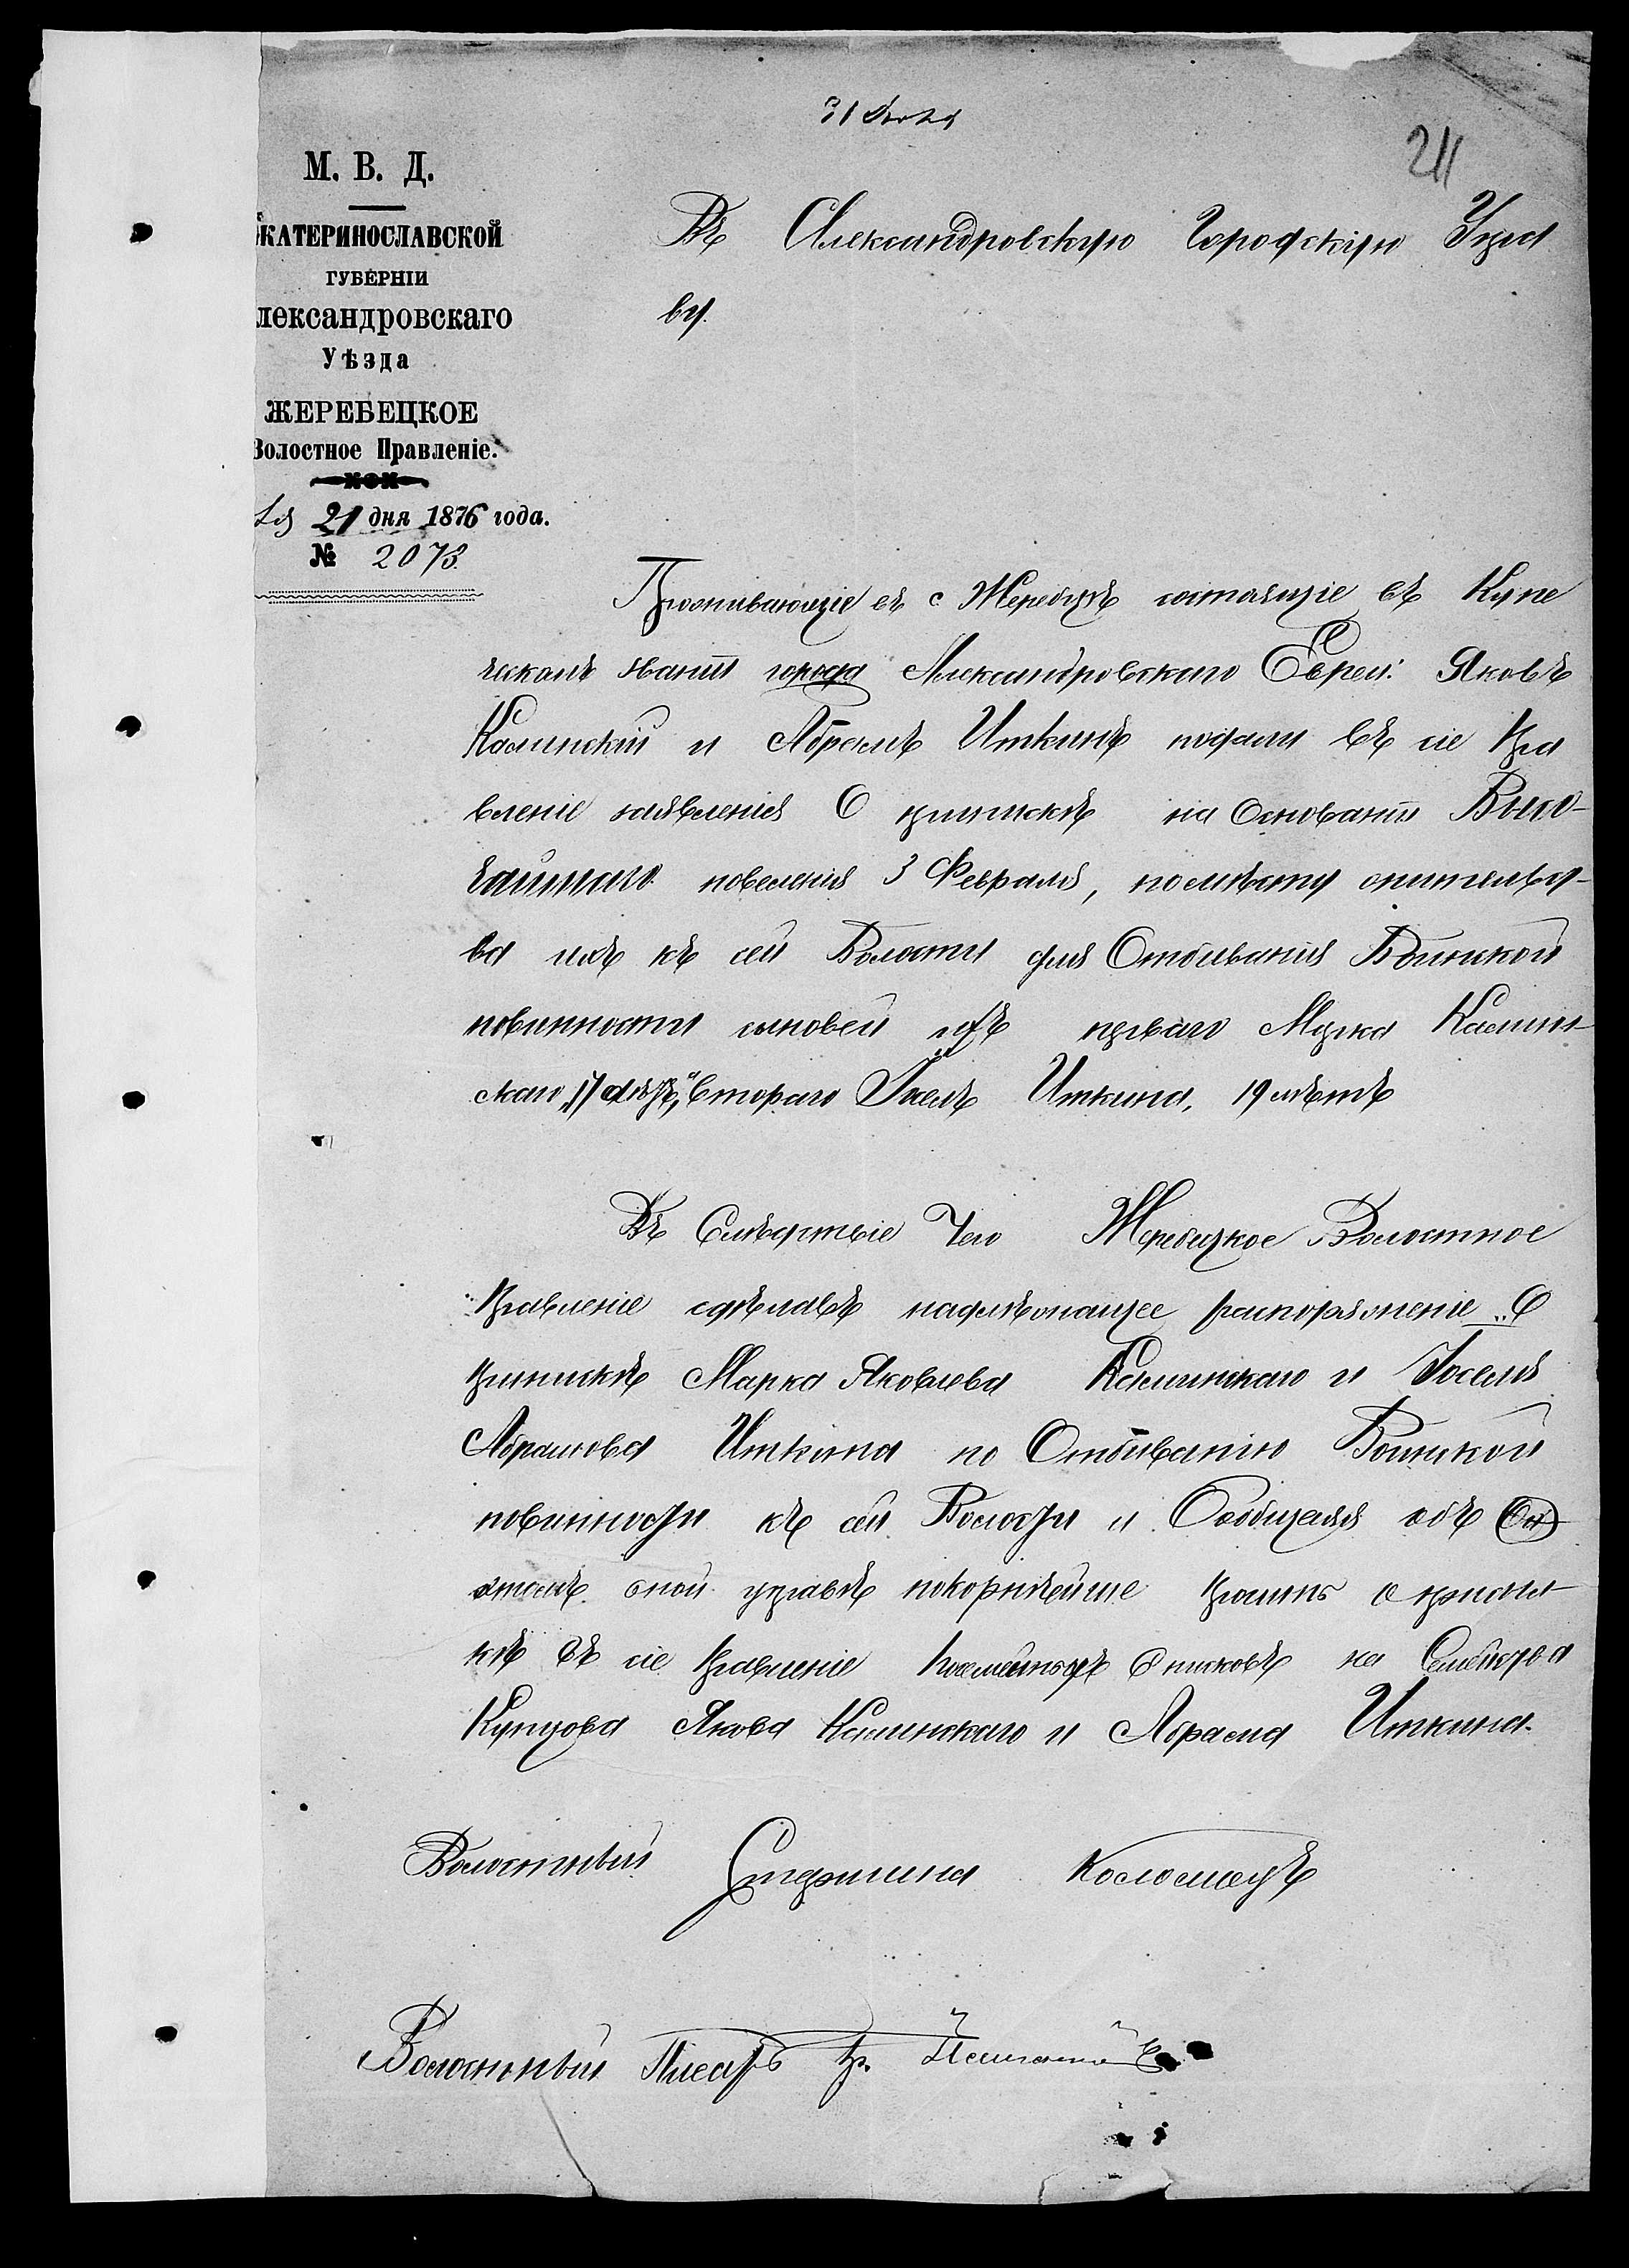 31 Іюля
211
М. В. Д.
ЕКАТЕРИНОСЛАВСКОЙ
ГУБЕРНІИ
лександровскаго
Уѣзда
ЖЕРЕБЕЦКОЕ
Волостное Правленіе.
ля 21 дня 1876 года.
№ 2073.
Въ Александровскую Городскую Упра
ву.
Проживающіе въ с Жеребцѣ состоящіе въ Купе
ческомъ званіи города Александровскаго Евреи: Яковъ
Калинскій и Абрамъ Иткинъ подали въ сіе Пра
вленіе заявленія О припискѣ на Основаніи Высо-
чайшаго повеленія 3 Февраля, по мѣсту жительст-
ва ихъ къ сей Волости для Отбыванія Воинской
повинности сыновей ихъ перваго Марка Калин-
скаго, 17 лѣтъ, Втораго Іосель Иткина, 19 лѣтъ
Въ Слѣдствіе Чего Жеребецкое Волостное
Правленіе сдѣлавъ надлѣжащее распоряженіе О
припискѣ Марка Яковлева Калинскаго и Іоселя
Абрамова Иткина по Отбыванію Воинской
повинности къ сей Волости и Сообщая объ
этомъ оной управѣ покорнѣйше просить о присыл-
кѣ въ сіе Правленіе посемейныхъ Списковъ на Семейства
Купцова Якова Калинскаго и Абрама Иткина.
Волостный Старшина Коломоецъ
Волостный Писарь